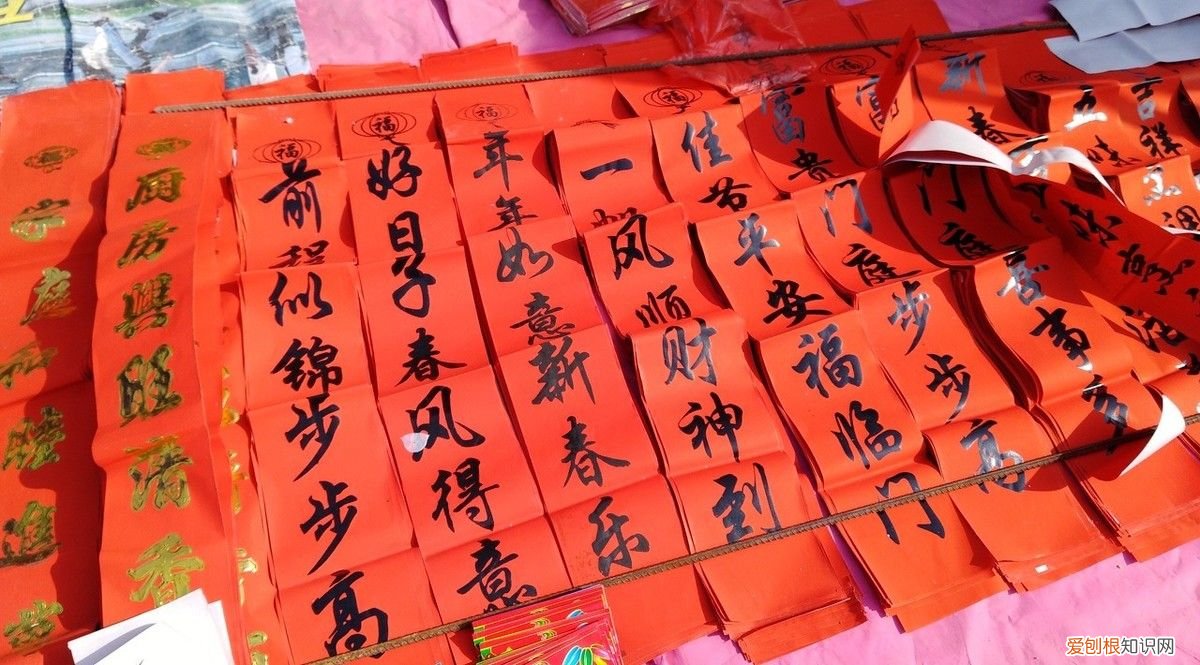 厨房興旺满香
福
前程似锦步步高
福
好日子春风得意
福
年年如意新春乐
一帆风顺财神到
福
佳节平安福临门
富贵门庭步步高
富
门庭喜事多
新春
五味
吉祥
爱刨根知识网